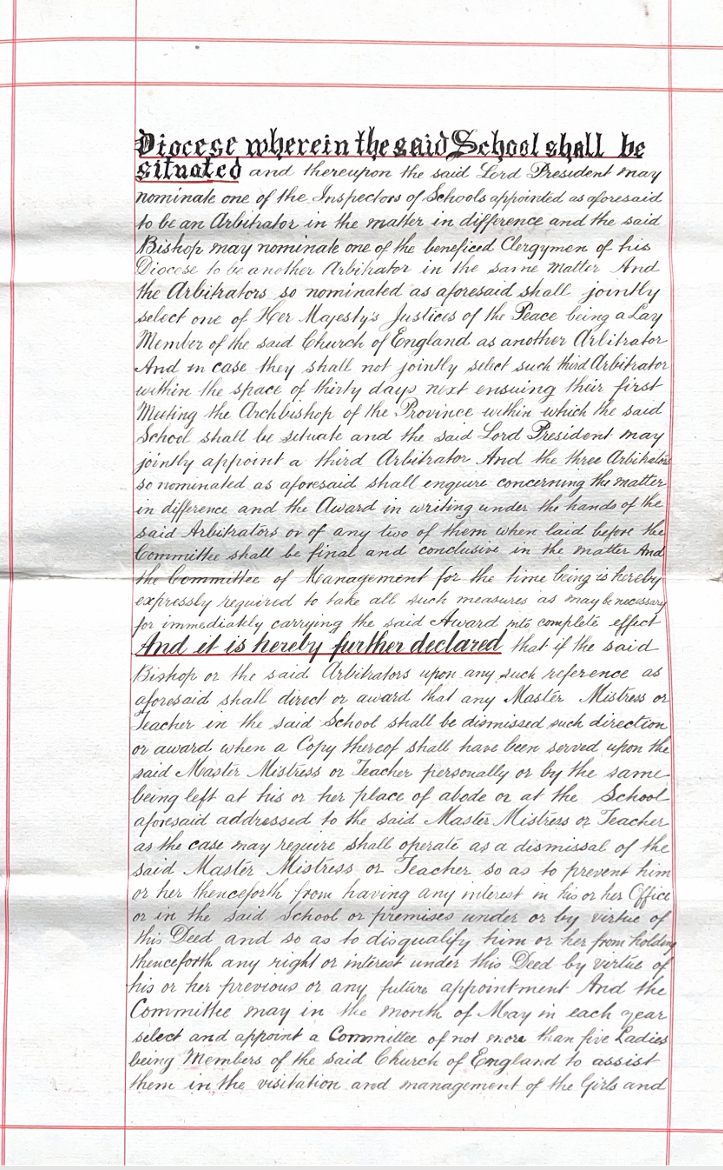 Diocese wherein the said School shall be
situated and thereupon the said Lord President may
nominate one of the Inspectors of Schools appointed as aforesaid
to be an Arbitrator in the matter in difference and the said
Bishop may nominate one of the beneficed Clergymen of his
Diocese to be another Arbitrator in the same matter And
the Arbitrators so nominated as aforesaid shall jointly
select one of Her Majesty's Justices of the Peace being a Lay
Member of the said Church of England as another Arbitrator
And in case they shall not jointly select such third Arbitrator
within the space of thirty days next ensuing their first
Meeting the Archbishop of the Province within which the said
School shall be situate and the said Lord President may
jointly appoint a third Arbitrator And the three Arbitrators
so nominated as aforesaid shall enquire concerning the matter
in difference and the Award in writing under the hands of the
said Arbitrators or of any two of them when laid before the
Committee shall be final and conclusive in the matter And
the Committee of Management for the time being is hereby
expressly required to take all such measures as may be necessary
for immediately carrying the said Award into complete effect
And it is hereby further declared that if the said
Bishop or the said Arbitrators upon any such reference as
aforesaid shall direct or award that any Master Mistress or
Teacher in the said School shall be dismissed such direction
or award when a Copy thereof shall have been served upon the
said Master Mistress or Teacher personally or by the same
being left at his or her place of abode or at the School
aforesaid addressed to the said Master Mistress or Teacher
as the case may require shall operate as a dismissal of the
said Master Mistress or Teacher so as to prevent him
or her thenceforth from having any interest in his or her Office
or in the said School or premises under or by virtue of
this Deed and so as to disqualify him or her from holding
thenceforth any right or interest under this Deed by virtue of
his or her previous or any future appointment And the
Committee may in the month of May in each year
select and appoint a Committee of not more than five Ladies
being Members of the said Church of England to assist
them in the visitation and management of the Girls and